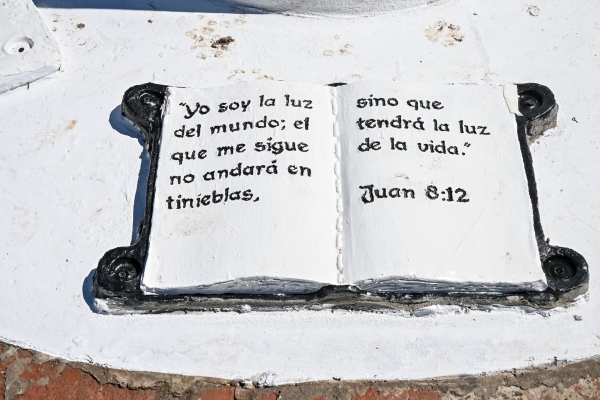 "Yo soy la luz
del mundo; el
que me sigue
no andará en
tinieblas,
sino que
tendrá la luz
de la vida."
Juan 8:12